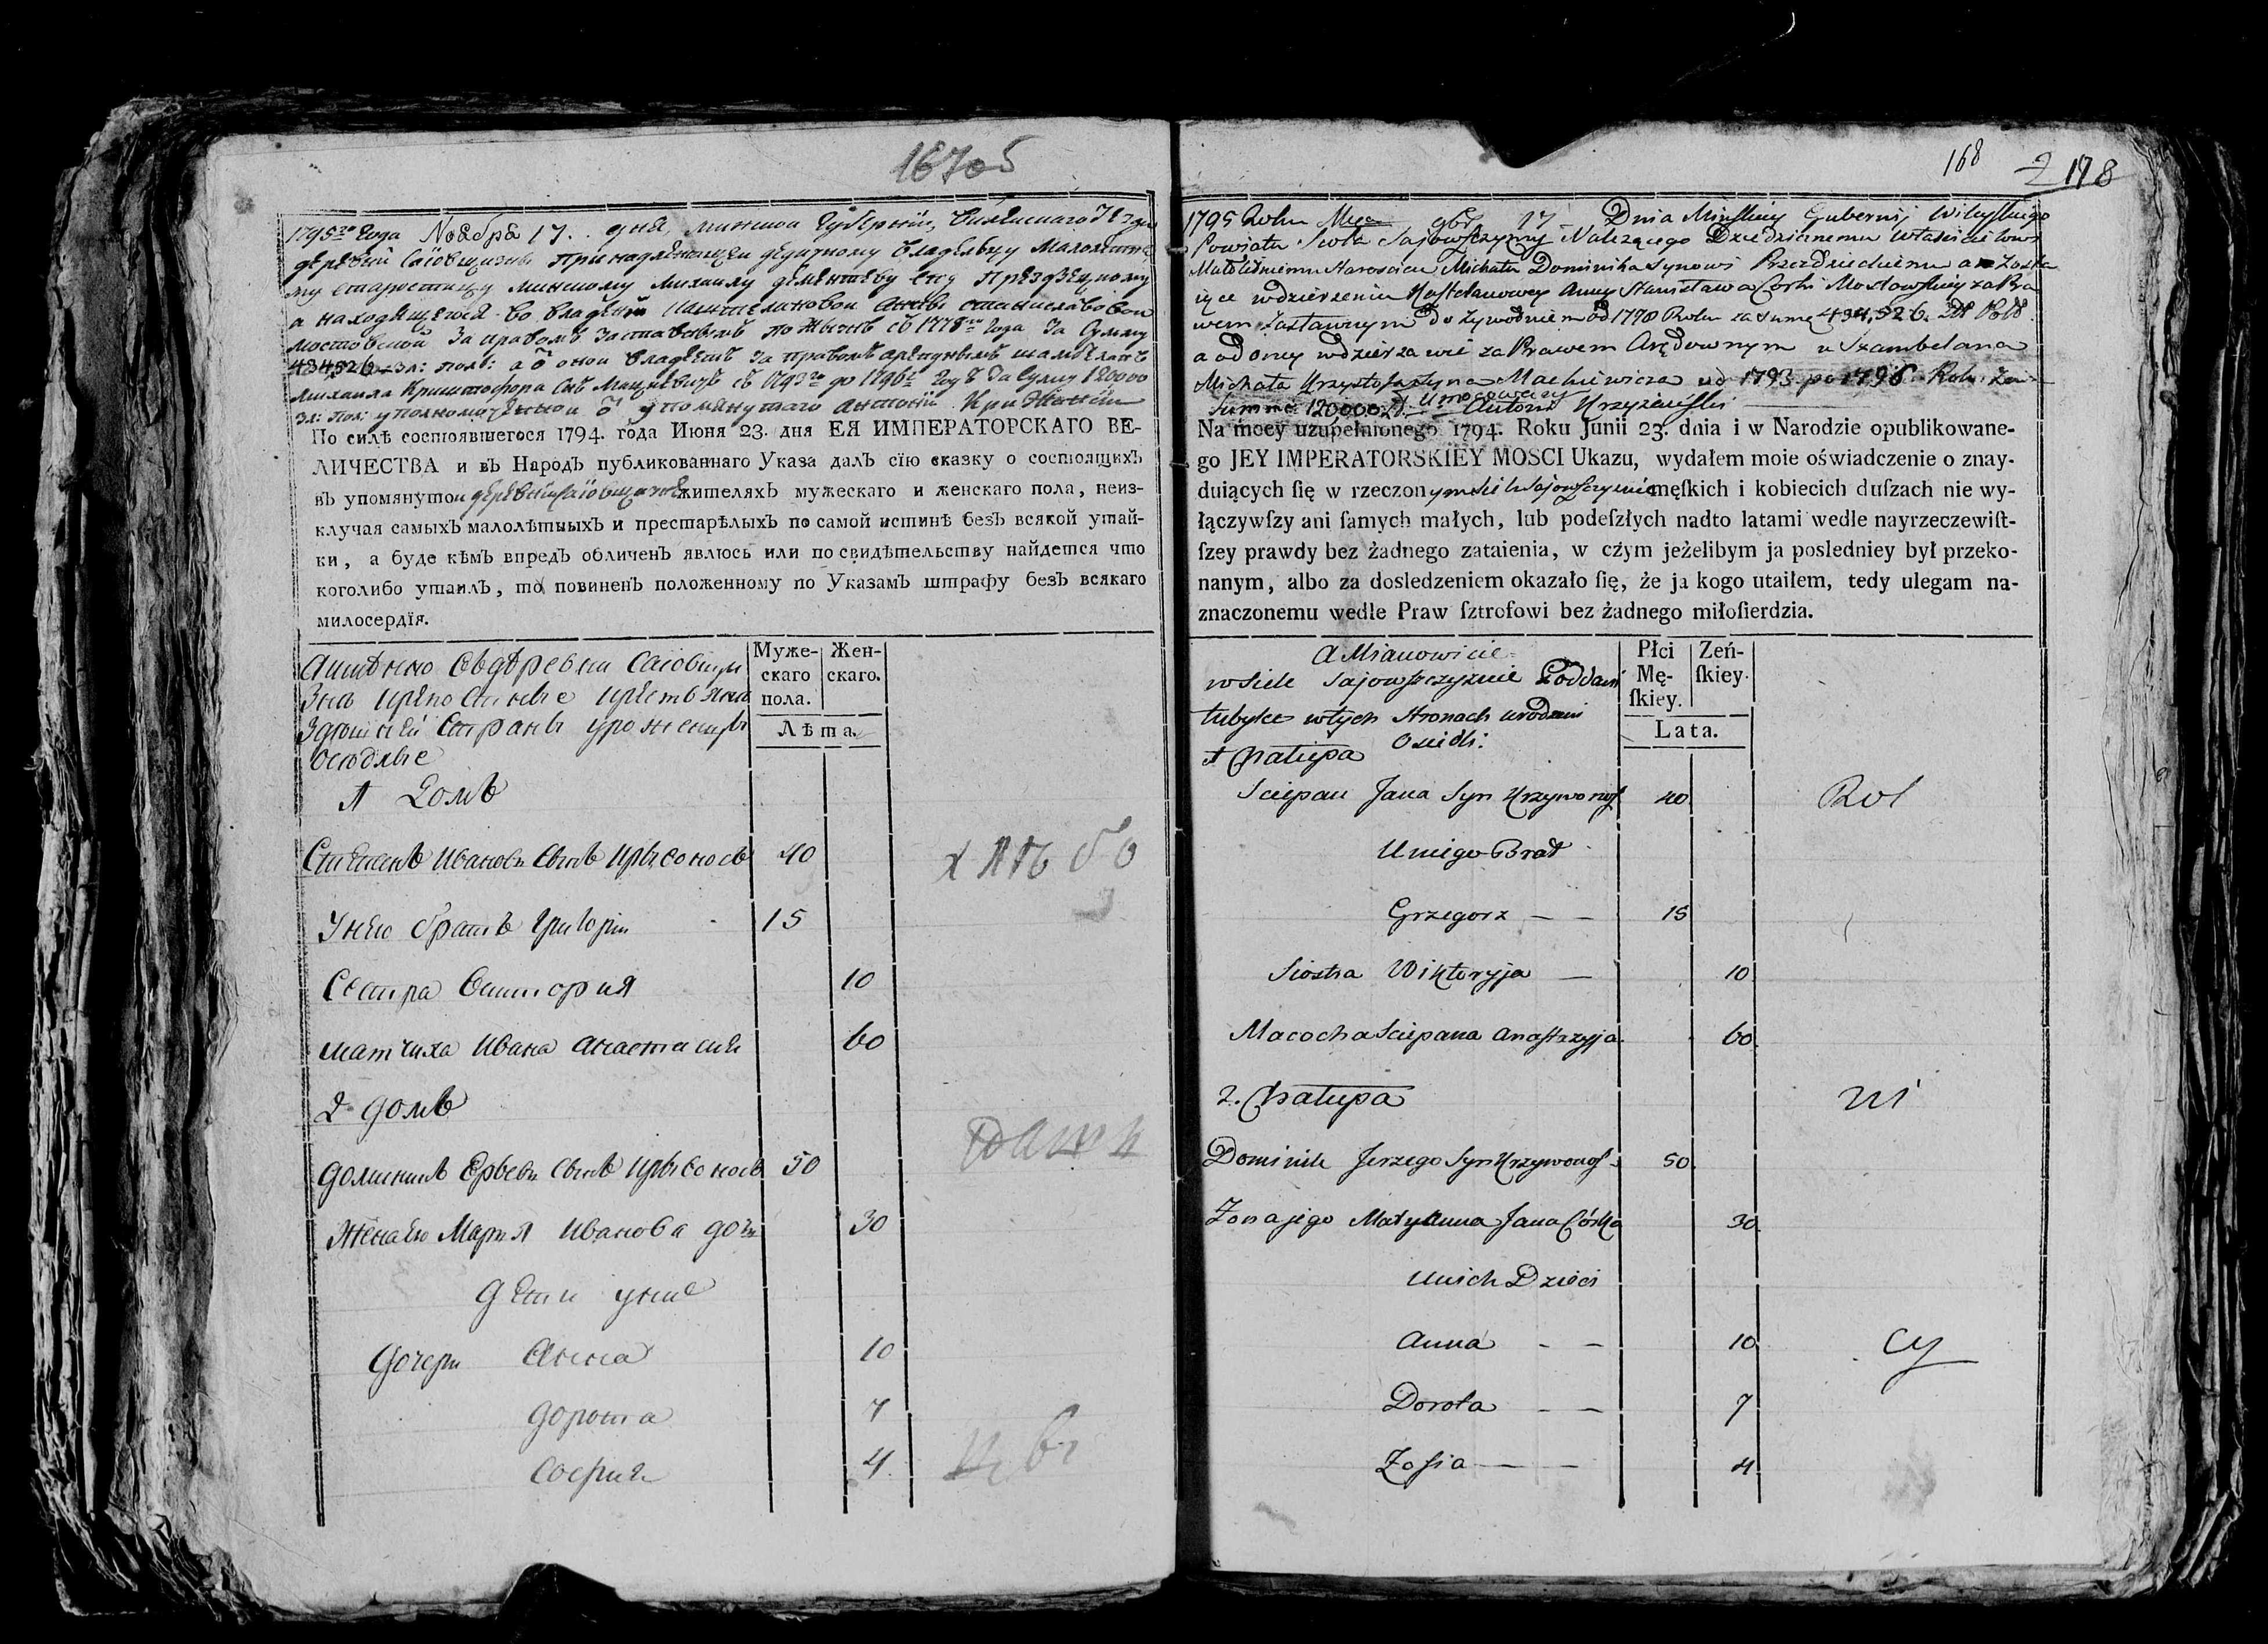 167об
1795го Года Ноября 17. дня, Минской Губернии, Вилейского
деревни Саіовщизны принадлежащей дедичному владельцу Малолетне
му старостичу минскому Михаилу дементьеву сну Презд
а находящейся во владении Анны Станиславовои
Мостовской За правом Заставным по с 1778 Года За Сумму
434526 зл: пол: а о оной владеет За правом арендным
Михаила Криштофора Сн с 1793го до 1796 Год За Сумму 120000
Зл: пол: уполномоченной упомянутаго Антоній
По силѣ состоявшегося 1794. года Июня 23. дня ЕЯ ИМПЕРАТОРСКАГО ВЕ-
ЛИЧЕСТВА и въ Народъ публикованнаго Указа далъ сїю сказку о состоящихъ
въ упомянутои деревни Саіовщизне жителяхъ мужескаго и женскаго пола, неиз-
ключая самыхъ малолѣтныхъ и престарѣлыхъ по самой истинѣ безъ всякой утай-
ки, а буде кѣмъ впредъ обличенъ явлюсь или по свидѣтельству найдется что
коголибо утаилъ, то повиненъ положенному по Указамъ штрафу безъ всякаго
милосердїя.
Аименно Въдеревни Саіовщи
Зне крепостные крестьяня
Здешней Страны уроженцы
оседлые
Муже-
скаго
пола.
Жен-
скаго.
Лѣта.
1 Домъ
Степанъ Ивановъ Сынъ Крывоносъ 40
Унего братъ Григори 15
Сестра Виктория 10
Матчиха Ивана Анастасия 60
2 домъ
Доминикъ Ерьевъ Сынъ Крывоносъ 50
Жена Его Мария Иванова дочь 30
Дети у них
Дочери Анна 10
Дорота 7
София 4
168
178
1795 Roku Mca 9br 17 Dnia Minskiey Gubernij Wileyskiego
Powiatu Sioła Sajowszczyzny Należącego Dziedzicznemu Właścicielowi
Małoletniemu Starościcu Michału Dominika Synowi Przezdzieckiemu a Zosta
iące w dzierżeniu Kasztelanowey Anny Stanisława Corki Mostowskiey za Pra
wem Zastawnym do Zywodniem od 1778 Roku za Summę 434,526. Zł Pols
a od oney w dzierżawie za Prawem Arędownym u Szambelana
Michała Krzysztofa Syna Mackiewicza od 1793 po 1796 Roku Za
Summę 120000 Zł. Umocowany Antoni Krzyżański
Na mocy uzupełnionego 1794. Roku Junii 23. dnia i w Narodzie opublikowane-
go JEY IMPERATORSKIEY MOSCI Ukazu, wydałem moie oświadczenie o znay-
duiących ſię w rzeczonym Siele Sajowszczyznie męſkich i kobiecich duſzach nie wy-
łączywſzy ani ſamych małych, lub podeſzłych nadto latami wedle nayrzeczewiſt-
ſzey prawdy bez żadnego zataienia, w czym jeżelibym ja posledniey był przeko-
nanym, albo za dosledzeniem okazało ſię, że ja kogo utaiłem, tedy ulegam na-
znaczonemu wedle Praw ſztrofowi bez żadnego miłoſierdzia.
A Mianowicie
w Siele Sajowszczyznie Poddani
tubylce w tych Stronach urodzeni
Osiedli:
Płci
Mę-
ſkiey.
Zeń-
ſkiey.
Lata.
1 Chałupa
Sciepan Jana Syn Krzywonos 40
U niego Brat
Grzegorz — — 15
Siostra Wiktoryja — 10
Macocha Sciepana Anastazyja 60
2. Chałupa
Dominik Jerzego Syn Krzywonos 50
Zona jego Maryanna Jana Córka 30
U nich Dzieci
Anna - — 10
Dorota — — 7
Zofia — — 4